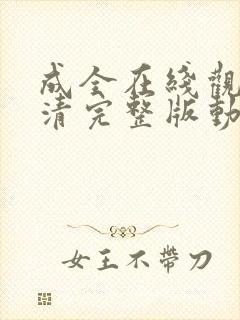 成全在綫觀
清完整版動
女王不帶刀